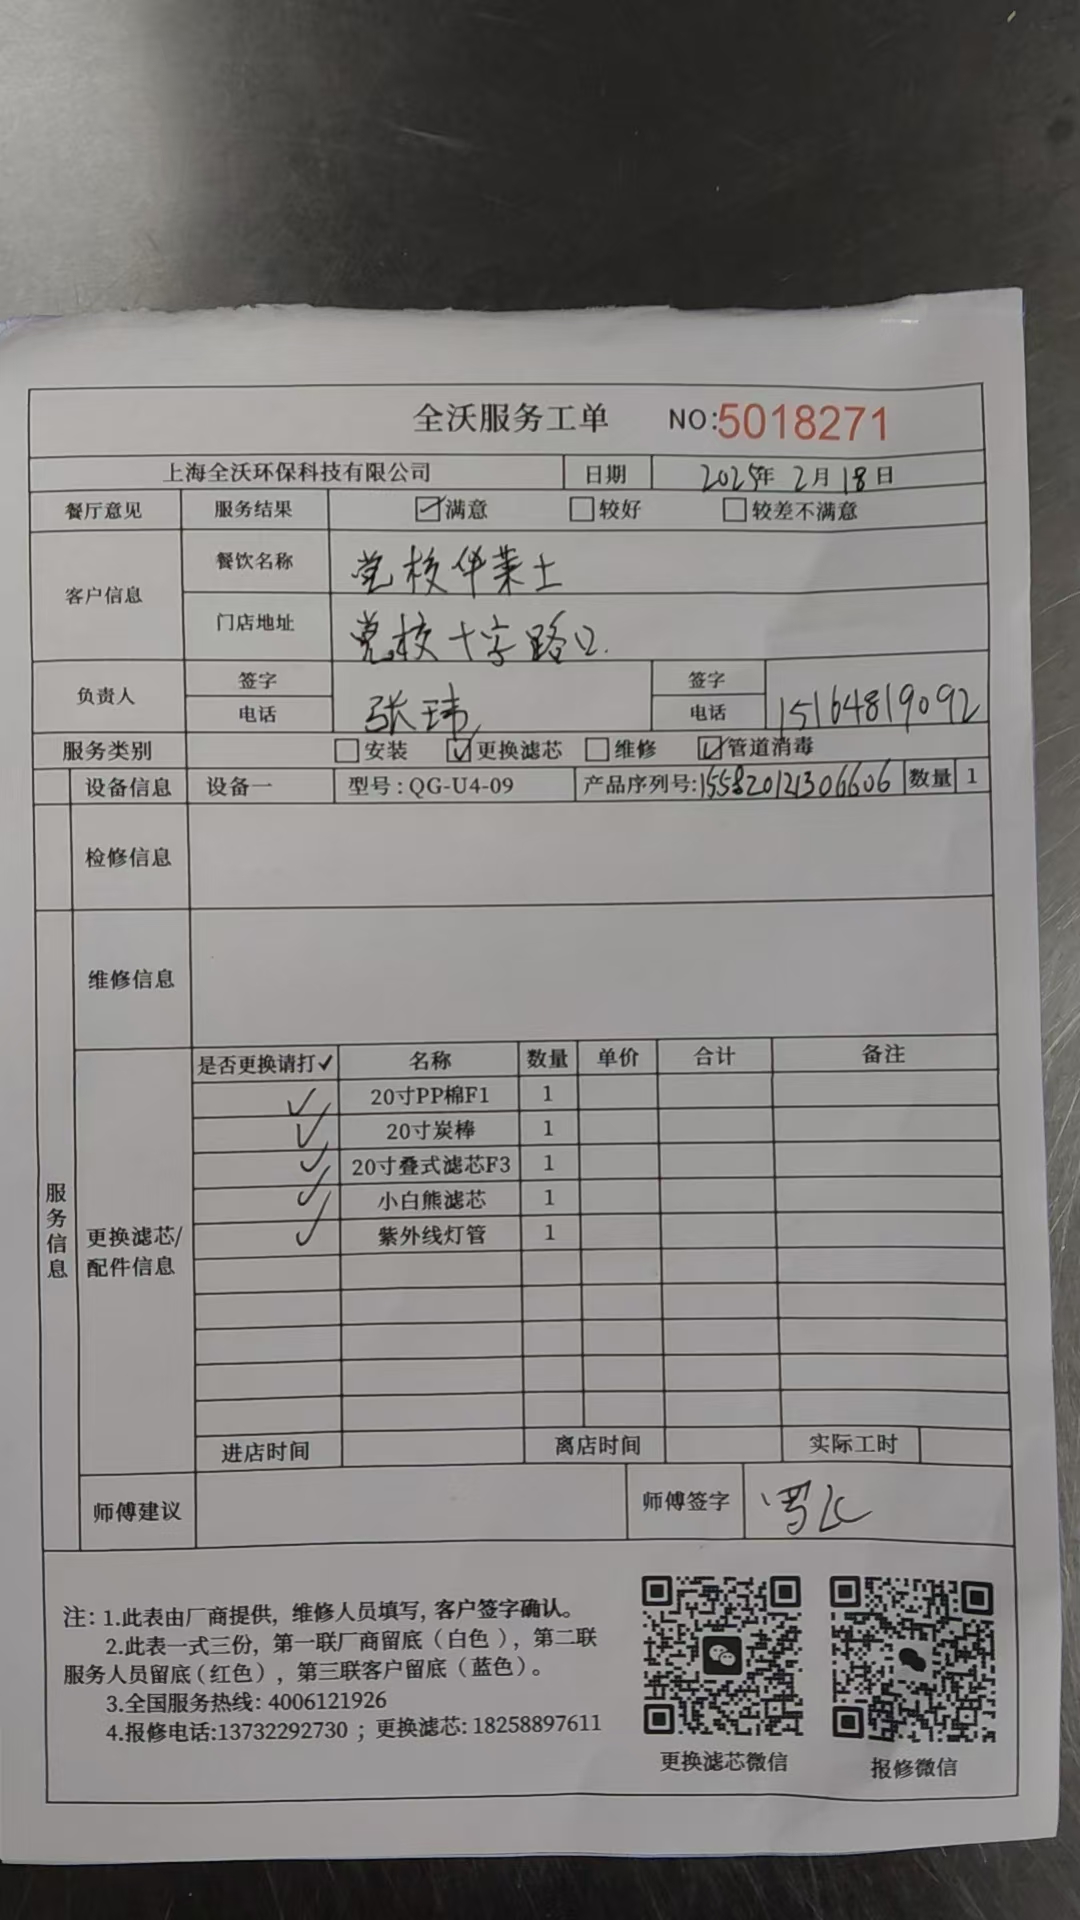 全沃服务工单 NO:5018271
上海全沃环保科技有限公司 日期 2025年 2月 18日
餐厅意见 服务结果 ☑满意 □较好 □较差不满意
客户信息 餐饮名称 党校华莱士
门店地址 党校十字路口.
负责人 签字 电话 张玮 签字 电话 15164819092
服务类别 □安装 ☑更换滤芯 □维修 ☑管道消毒
设备信息 设备一 型号:QG-U4-09 产品序列号:155820121306606 数量 1
检修信息
维修信息
服务信息
更换滤芯/配件信息
是否更换请打✓ 名称 数量 单价 合计 备注
✓ 20寸PP棉F1 1
✓ 20寸炭棒 1
✓ 20寸叠式滤芯F3 1
✓ 小白熊滤芯 1
✓ 紫外线灯管 1
进店时间 离店时间 实际工时
师傅建议 师傅签字
注: 1.此表由厂商提供, 维修人员填写, 客户签字确认。
2.此表一式三份, 第一联厂商留底(白色), 第二联
服务人员留底(红色), 第三联客户留底(蓝色)。
3.全国服务热线: 4006121926
4.报修电话:13732292730 ; 更换滤芯: 18258897611
更换滤芯微信 报修微信